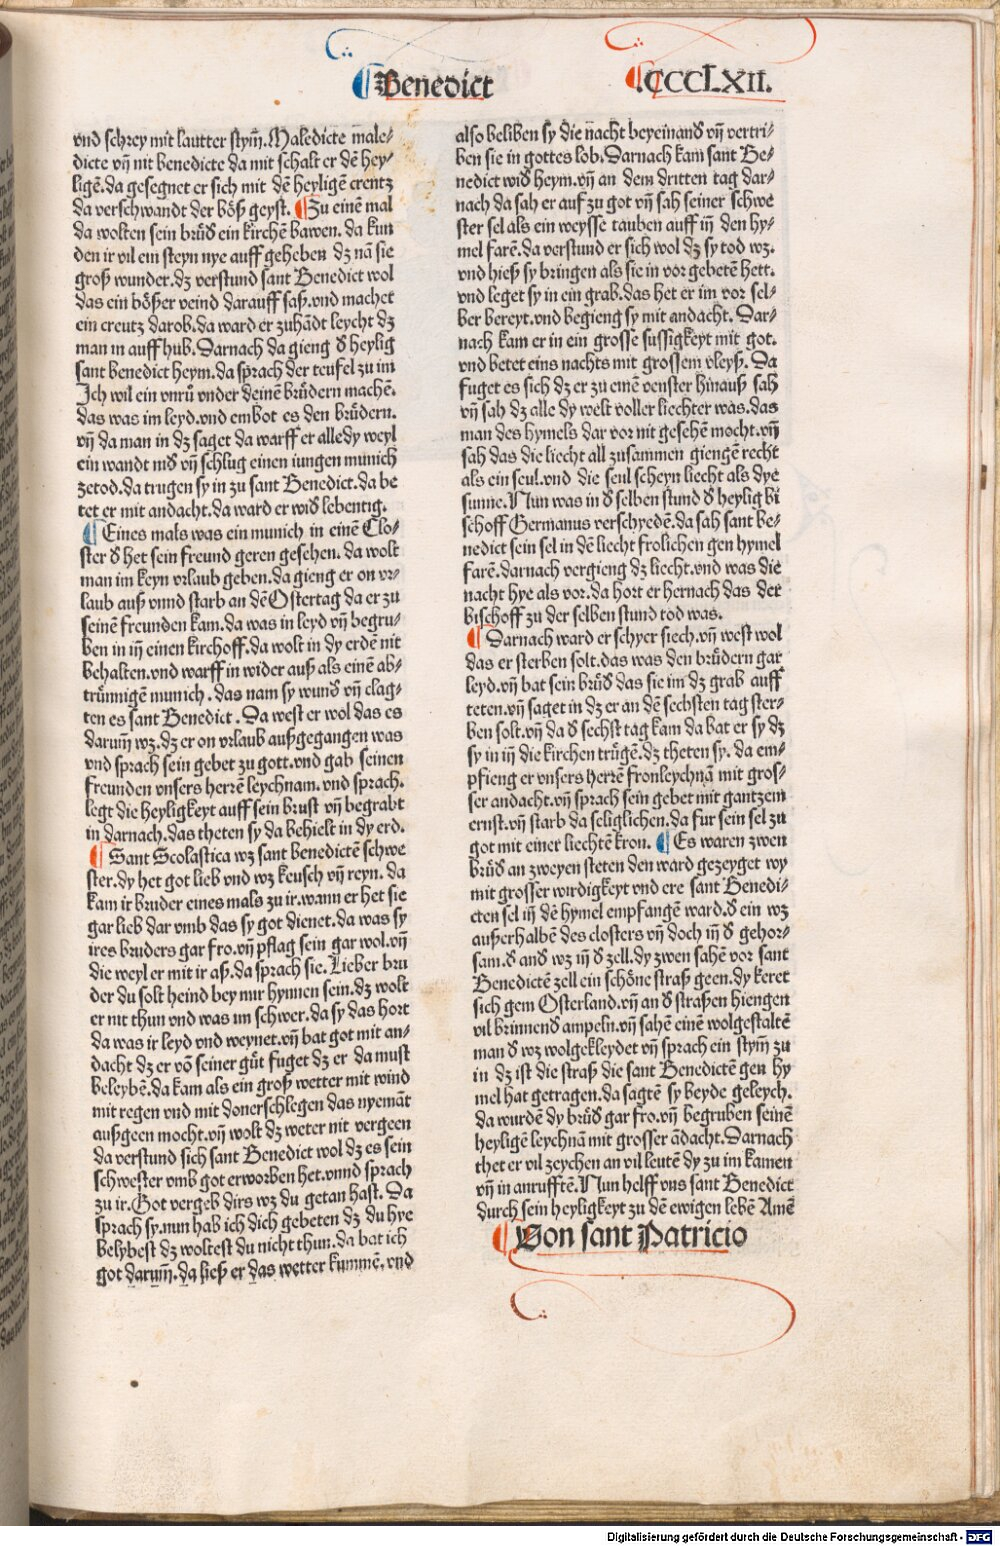 ¶Benedict
.CCCLXII.
vnd schrey mit lautter stym̄. Maledicte male⸗
dicte vn̄ nit benedicte da mit schalt er dē hey⸗
ligē. da gesegnet er sich mit dē heyligē creutz
da verschwandt der böß geyst. ¶Zu einē mal
da wolten sein brůď ein kirchē bawen. da kun
den ir vil ein steyn nye auff geheben dz nā sie
groß wunder. dz verstund sant Benedict wol
das ein bößer veind darauff saß. vnd machet
ein creutz darob. da ward er zuhādt leycht dz
man in auff hub. Darnach da gieng ď heylig
sant benedict heym. da sprach der teufel zu im
Ich wil ein vnrů vnder deinē brůdern machē.
das was im leyd. vnd embot es den brůdern.
vn̄ da man in dz saget da warff er alle dy weyl
ein wandt niď vn̄ schlug einen iungen munich
zetod. da trugen sy in zu sant Benedict. da be
tet er mit andacht. da ward er wiď lebentig.
¶Eines mals was ein munich in einē Clo⸗
ster ď het sein freund geren gesehen. da wolt
man im keyn vrlaub geben. da gieng er on vr⸗
laub auß vnnd starb an dē Ostertag da er zu
seinē freunden kam. da was in leyd vn̄ begru⸗
ben in in̄ einen kirchoff. da wolt in dy erdē nit
behalten. vnd warff in wider auß als einē ab⸗
trůnnigē munich. das nam sy wunď vn̄ clag⸗
ten es sant Benedict. Da west er wol das es
darum̄ wz. dz er on vrlaub außgegangen was
vnd sprach sein gebet zu gott. vnd gab seinen
freunden vnsers herrē leychnam. vnd sprach.
legt die heyligkeyt auff sein brust vn̄ begrabt
in darnach. das theten sy da behielt in dy erd.
¶Sant Scolastica wz sant benedictē schwe
ster. dy het got lieb vnd wz keusch vn̄ reyn. da
kam ir bruder eines mals zu ir. wann er het sie
gar lieb dar vmb das sy got dienet. da was sy
ires bruders gar fro. vn̄ pflag sein gar wol. vn̄
die weyl er mit ir aß. da sprach sie. Lieber bru
der du solt heind bey mir hynnen sein. dz wolt
er nit thun vnd was im schwer. da sy das hort
da was ir leyd vnd weynet. vn̄ bat got mit an⸗
dacht dz er vō seiner gůt fuget dz er da must
beleybē. da kam als ein groß wetter mit wind
mit regen vnd mit donerschlegen das nyemāt
außgeen mocht. vn̄ wolt dz weter nit vergeen
da verstund sich sant Benedict wol dz es sein
schwester vmb got erworben het. vnnd sprach
zu ir. Got vergeb dirs wz du getan hast. Da
sprach sy. nun hab ich dich gebeten dz du hye
belybest dz woltest du nicht thun. da bat ich
got darum̄. da hieß er das wetter kummē. vnd
also beliben sy die nacht beyeinanď vn̄ vertri⸗
ben sie in gottes lob. Darnach kam sant Be⸗
nedict wiď heym. vn̄ an dem dritten tag dar⸗
nach da sah er auf zu got vn̄ sah seiner schwe
ster sel als ein weysse tauben auff in̄ den hy⸗
mel farē. da verstund er sich wol dz sy tod wz.
vnd hieß sy bringen als sie in vor gebetē hett.
vnd leget sy in ein grab. das het er im vor sel⸗
ber bereyt. vnd begieng sy mit andacht. Dar⸗
nach kam er in ein grosse sussigkeyt mit got.
vnd betet eins nachts mit grossem vleyß. Da
fuget es sich dz er zu einē venster hinauß sah
vn̄ sah dz alle dy welt voller liechter was. das
man des hymels dar vor nit gesehē mocht. vn̄
sah das die liecht all zusammen giengē recht
als ein seul. vnd die seul scheyn liecht als dye
sunne. Nun was in ď selben stund ď heylig bi
schoff Germanus verschydē. da sah sant be⸗
nedict sein sel in dē liecht frolichen gen hymel
farē. darnach vergieng dz liecht. vnd was die
nacht hye als vor. da hort er hernach das der
bischoff zu der selben stund tod was.
¶Darnach ward er schyer siech. vn̄ west wol
das er sterben solt. das was den brůdern gar
leyd. vn̄ bat sein brůď das sie im dz grab auff
teten. vn̄ saget in dz er an dē sechsten tag ster⸗
ben solt. vn̄ da ď sechst tag kam da bat er sy dz
sy in in̄ die kirchen trůgē. dz theten sy. da em⸗
pfieng er vnsers herrē fronleychnā mit gros⸗
ser andacht. vn̄ sprach sein gebet mit gantzem
ernst. vn̄ starb da seliglichen. da fur sein sel zu
got mit einer liechtē kron. ¶Es waren zwen
brůď an zweyen steten den ward gezeyget wy
mit grosser wirdigkeyt vnd ere sant Benedi⸗
cten sel in̄ dē hymel empfangē ward. ď ein wz
außerhalbē des closters vn̄ doch in̄ ď gehor⸗
sam. ď anď wz in̄ ď zell. dy zwen sahē vor sant
Benedictē zell ein schöne straß geen. dy keret
sich gem Osterland. vn̄ an ď straßen hiengen
vil brinnenď ampeln. vn̄ sahē einē wolgestaltē
man ď wz wolgekleydet vn̄ sprach ein stym̄ zu
in dz ist die straß die sant Benedictē gen hy
mel hat getragen. da sagtē sy beyde geleych.
da wurdē dy brůď gar fro. vn̄ begruben seinē
heyligē leychnā mit grosser ādacht. Darnach
thet er vil zeychen an vil leutē dy zu im kamen
vn̄ in anrufftē. Nun helff vns sant Benedict
durch sein heyligkeyt zu dē ewigen lebē Amē
¶Von sant Patricio
Digitalisierung gefördert durch die Deutsche Forschungsgemeinschaft - DFG